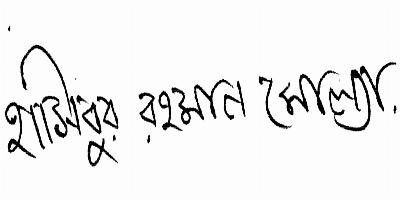 হাসিবুর রহমান মোল্যা.